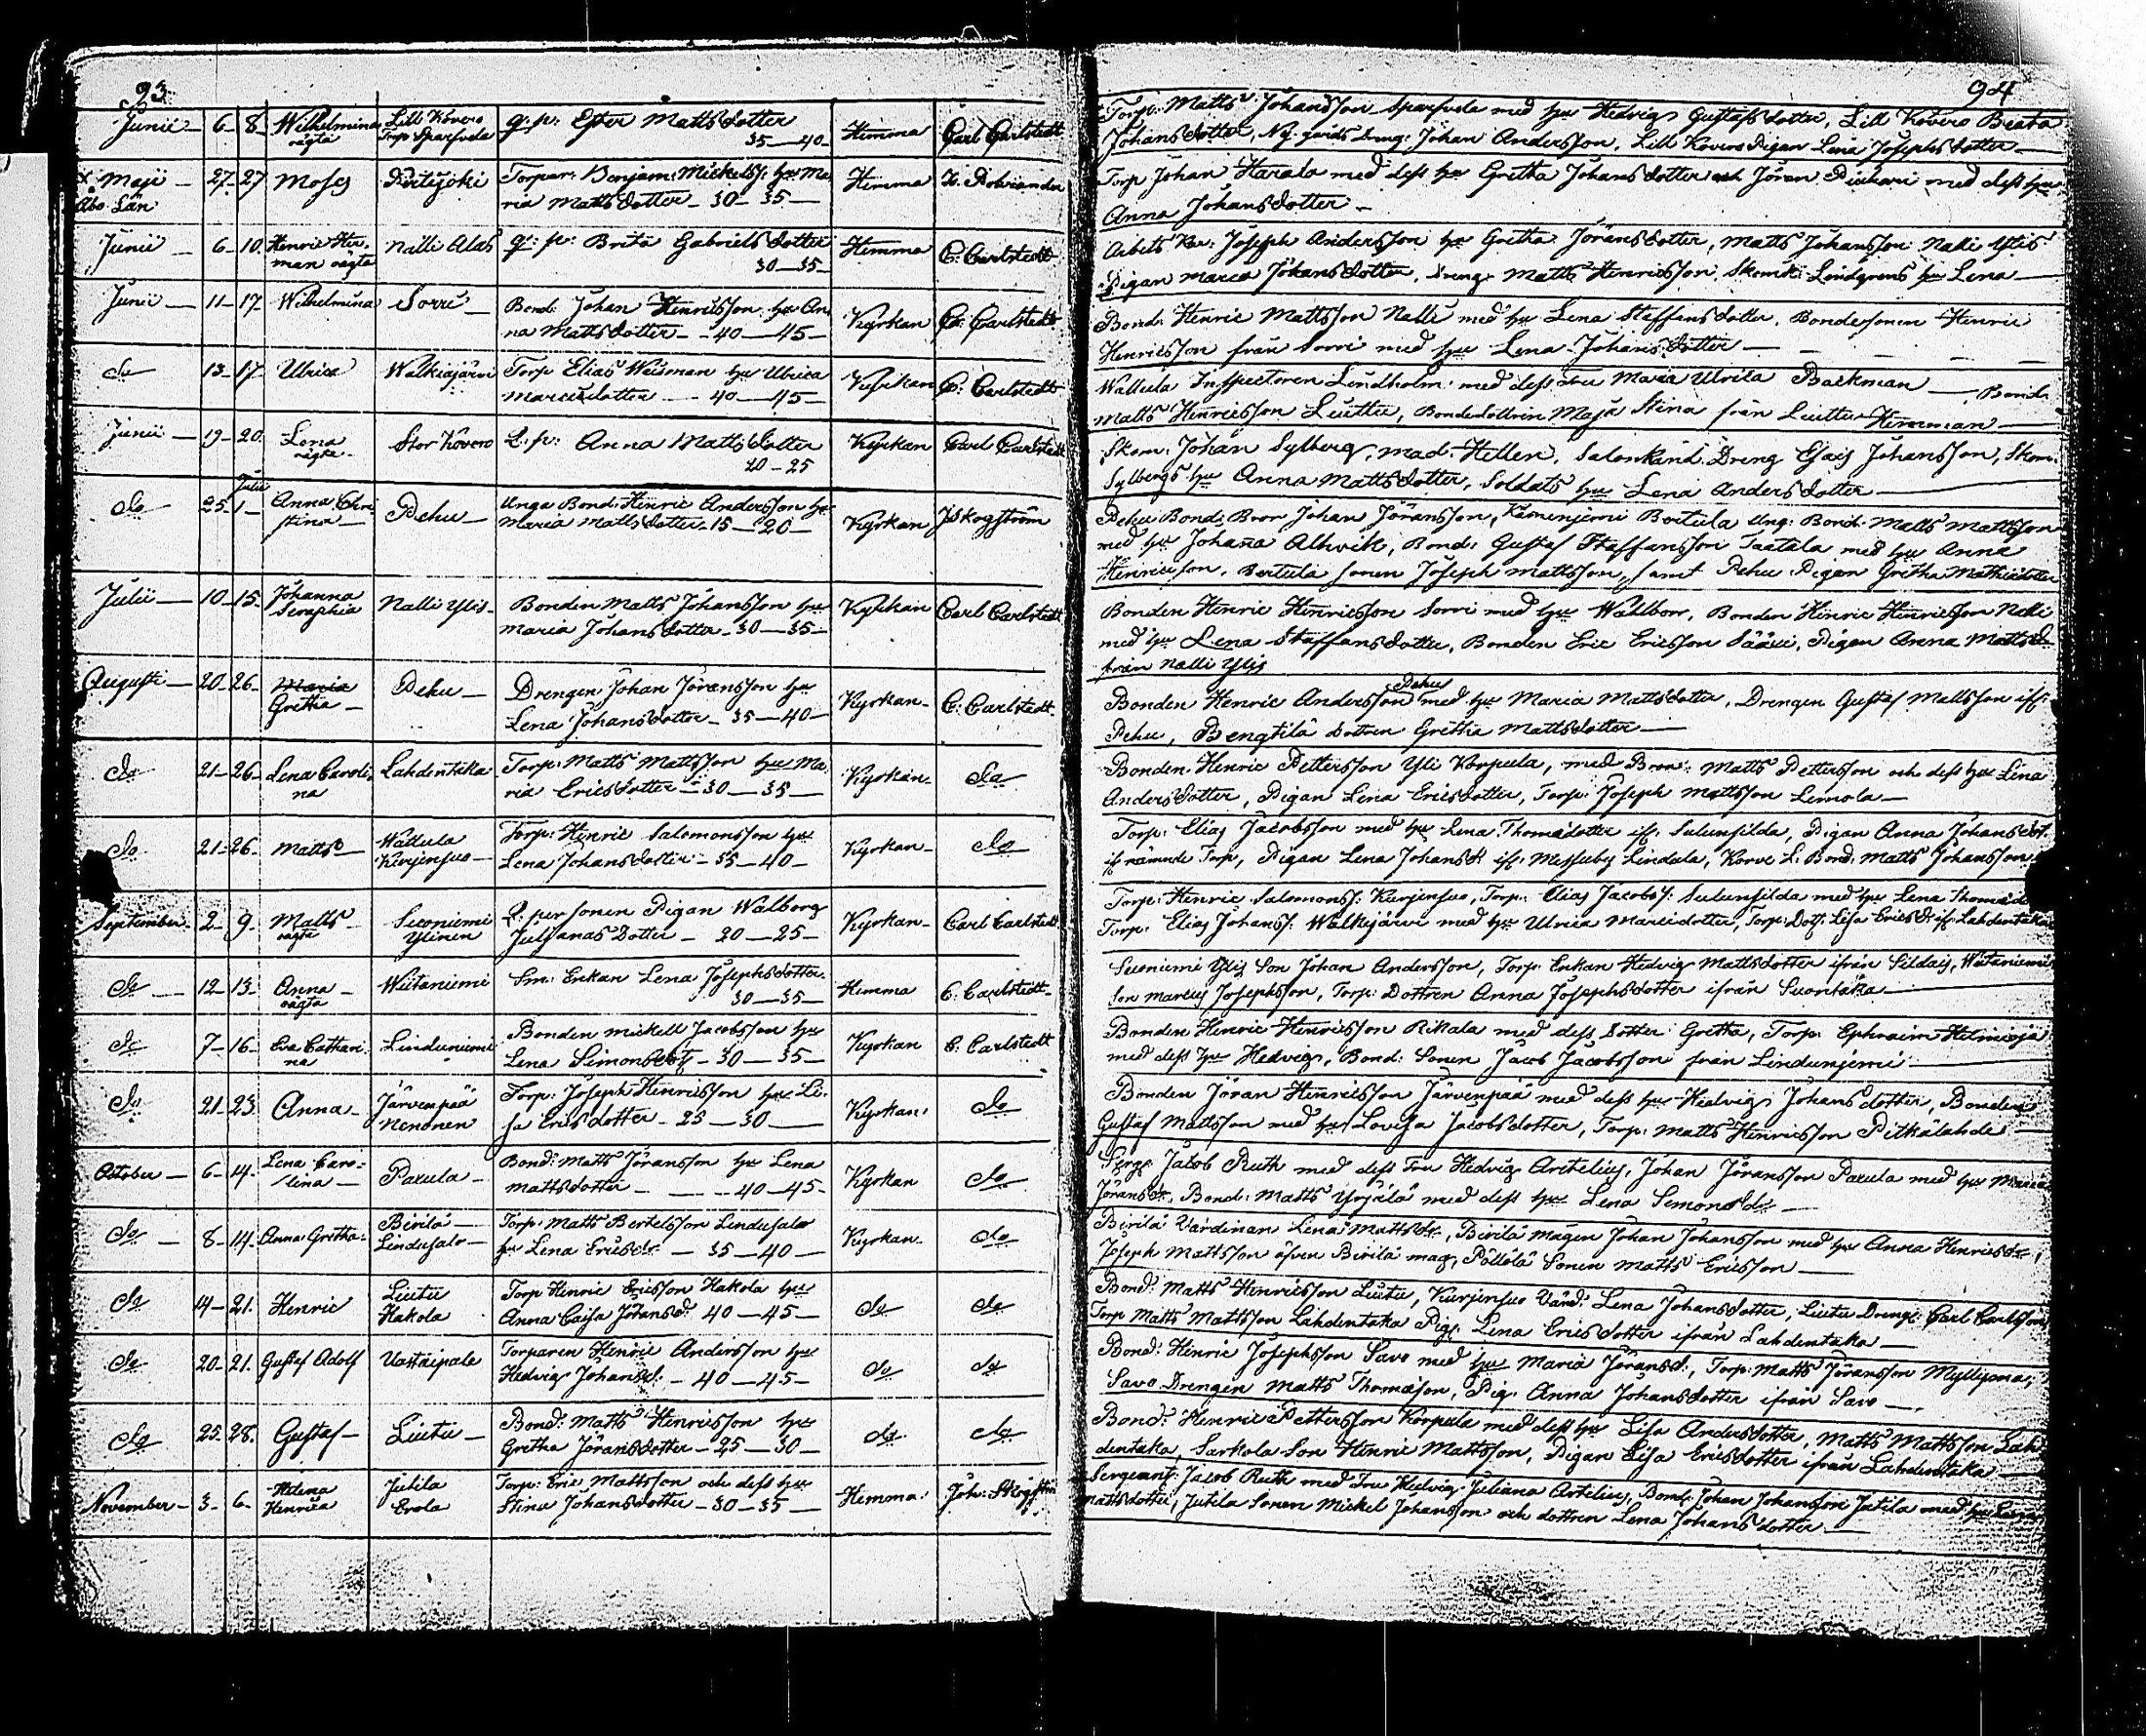 93
Junii 6 8 Wilhelmina Lill Kövero q: p: Ester Matts dotter Hemma Carl Carlstedt
oägta Torp Sparfvola 35 — 40
x Maji 27 27 Moses Pertijoki Torpar: Benjam: Mickelss: hu Ma Hemma
Åbo Län ria Matts dotter 30 35
Junii 6 10 Henric Her- Nalli Alas q: p: Brita Gabriels dotter Hemma C: Carlstedt
man oägta 30 — 35
Junii 11 17 Wilhelmina Sorri Bond: Johan Henricsson hu An Kyrkan C: Carlstedt
na Matts dotter 40 — 45
do 13 17 Ulrica Walkiajärvi Torp Elias Widman hu Ulrica Kyrkan C: Carlstedt
Marcusdotter 40 — 45
Junii 19 20 Lena Stor Kövero q: p: Anna Matts dotter Kyrkan Carl Carlstedt
oägta 20 - 25
Julii
do 25 1 Anna Chri- Pehu Unga Bond: Henric Andersson hu Kyrkan J Skogström
stina Maria Matts dotter 15 — 20
Julii 10 15 Johanna Nalli Ylis Bonden Matts Johansson hu Kyrkan Carl Carlstedt
Seraphia Maria Johans dotter 30 — 35
Augusti 20 26 Maria Pehu Drengen Johan Jöransson hu Kyrkan C: Carlstedt
Gretha Lena Johans dotter 35 — 40
do 21 26 Lena Caroli Lahdentaka Torp: Matts Mattsson hu Ma Kyrkan do
na ria Ericsdotter 30 — 35
do 21 26 Matts Wattula Torp: Henric Salomonsson hu Kyrkan do
Kurjensuo Lena Johans dotter 35 — 40
September 2 9 Matts Suoniemi q: personen Pigan Walborg Kyrkan Carl Carlstedt
oägta Ylinen Julianas Dotter 20 — 25
do 12 13 Anna Wiitaniemi Sm: Enkan Lena Josephs dotter Hemma C: Carlstedt
oägta 30 — 35
do 7 16 Eva Cathari Linduniemi Bonden Mickell Jacobsson hu Kyrkan C: Carlstedt
na Lena Simonsdot: 30 — 35
do 21 23 Anna Järvenpää Torp: Joseph Henricsson hu Li- Kyrkan do
Nenonen sa Erics dotter 25 — 30
October 6 14 Lena Caro- Paxula Bond: Matts Jöransson hu Lena Kyrkan do
lina Mattsdotter 40 — 45
do 8 14 Anna Gretha Birilä Torp: Matts Bertelsson Lindusalo Kyrkan do
Lindusalo hu Lena Ericsdr 35 — 40
do 14 21 Henric Liutu Torp Henric Ericsson Hakola hu do do
Hakola Anna Caisa Jöransd: 40 — 45
do 20 21 Gustaf Adolf Uottaipale Torparen Henric Andersson hu do do
Hedvig Johansd: 40 — 45
do 25 28 Gustaf Liutu Bond: Matts Henricsson hu do do
Gretha Jörans dotter 25 — 30
November 3 6 Helena Jutila Torp: Eric Mattsson och dess hu Hemma Joh: Skogström
Henrica Erola Stina Johans dotter 30 — 35
94
Torp: Matts Johansson Sparfvola med hu Hedvig Gustafs dotter, Lill Kövero Beata
Johans dotter, Ny-gårds Dreng: Johan Andersson, Lill Kövero Pigan Lena Josephs dotter
Torp Johan Harala med dess hu Gretha Johans dotter och Jöran med dess hu
Anna Johans dotter
Arbets Kar: Joseph Andersson hu Gretha Jörans dotter, Matts Johansson Nalli Ylis
Pigan Maria Johans dotter, Dreng Matts Henricsson, Lindgrens hu Lena
Bond: Henric Mattsson Nalli med hu Lena Steffans dotter, Bondesonen Henric
Henricsson från Sorri med hu Lena Johans dotter
Wallula Inspectoren Lindholm med dess Fru Maria Ulrika Backman, Bond:
Matts Henricsson Liuttu, Bondedottren Maja Stina från Liuttu Hemman
Skom: Johan Sylberg, Mad: Hellen, Dreng Esaij Johansson, Skom:
Sylbergs hu Anna Matts dotter, Soldats hu Lena Anders dotter
Pehu Bond: Bror Johan Jöransson, Bertula Ung: Bond: Matts Mattsson
med hu Johana Alhvik, Bond: Gustaf Staffansson Taatala med hu Anna
Henricsson, Bertula sonen Joseph Mattsson, samt Pehu Pigan Gretha
Bonden Henric Henricsson Sorri med hu Wahlborr, Bonden Henric Henricsson Nalli
med hu Lena Staffans dotter, Bonden Eric Ericsson Sääxi, Pigan Anna Matts d:
från Nalli Ylis
Pehu
Bonden Henric Andersson med hu Maria Matts dotter, Drengen Gustaf Mattsson if:
Pehu, Bengtilä dottren Gretha Mattsdotter
Bonden Henric Pettersson Yli Korpula, med Bror: Matts Pettersson och dess hu Lena
Anders dotter, Pigan Lena Ericsdotter, Torp: Joseph Mattsson Lemola
Torp: Elias Jacobsson med hu Lena Thomædotter if: Sulunsilda, Pigan Anna Johans dot:
if nämnde Torp, Pigan Lena Johansd: if: Messuby Lindala, Korve L: Bond: Matts Johansson
Torp: Henric Salomonss: Kurjensuo, Torp: Elias Jacobss: Sulunsilda med hu Lena Thomæd
Torp: Elias Johanss: Walkejärvi med hu Ulrica Marcidotter, Torp: Dot: Lisa Ericsd: if: Lahdentaka
Suoniemi Ylis Son Johan Andersson, Torp: Enkan Hedvig Mattsdotter ifrån Sildais, Wiitaniemi
Son Marcus Josephsson, Torp: Dottren Anna Josephsdotter ifrån Suontaka
Bonden Henric Henricsson Rikala med dess dotter Gretha, Torp: Ephraim
med dess hu Hedvig, Bond: Sonen Jacob Jacobsson från Lindunjemi
Bonden Jöran Henricsson Järvenpää med dess hu Hedvig Johans dotter, Bonden
Gustaf Mattsson med hu Lovisa Jacobs dotter, Torp: Matts Henricsson Pitkälahde
Serge: Jacob Ruth med dess Fru Hedvig Arctelius, Johan Jöransson Paxula med hu Maria
Jöransdr, Bond: Matts Yrjälä med dess hu Lena Simonsdr
Birilä Värdinan Lena Mattsdr, Birilä mågen Johan Johansson med hu Anna Henricsdr,
Joseph Mattsson äfven Birilä mag, Pöllölä Sonen Matts Ericsson
Bond: Matts Henricsson Liutu, Kurjensuo Värd: Lena Johans dotter, Liutu Dreng: Carl Carlsson
Torp Matts Mattsson Lahdentaka Pig: Lena Erics dotter ifrån Lahdentaka
Bond: Henric Josephsson Savo med hu Maria Jöransd:, Torp: Matts Jöransson Myllyoma,
Savo Drengen Matts Thomæson, Pig: Anna Johansdotter ifrån Savo
Bond: Henric Pettersson Korpula med dess hu Lisa Andersdotter, Matts Mattsson Lah
dentaka, Sarkola Son Henric Mattsson, Pigan Lisa Ericsdotter ifrån Lahdentaka
Sergeant: Jacob Ruth med Fru Hedvig Juliana Artelius, Bond: Johan Johansson Jutila med hu Lena
Mattsdotter, Jutila Sonen Mickel Johansson och dottren Lena Johans dotter